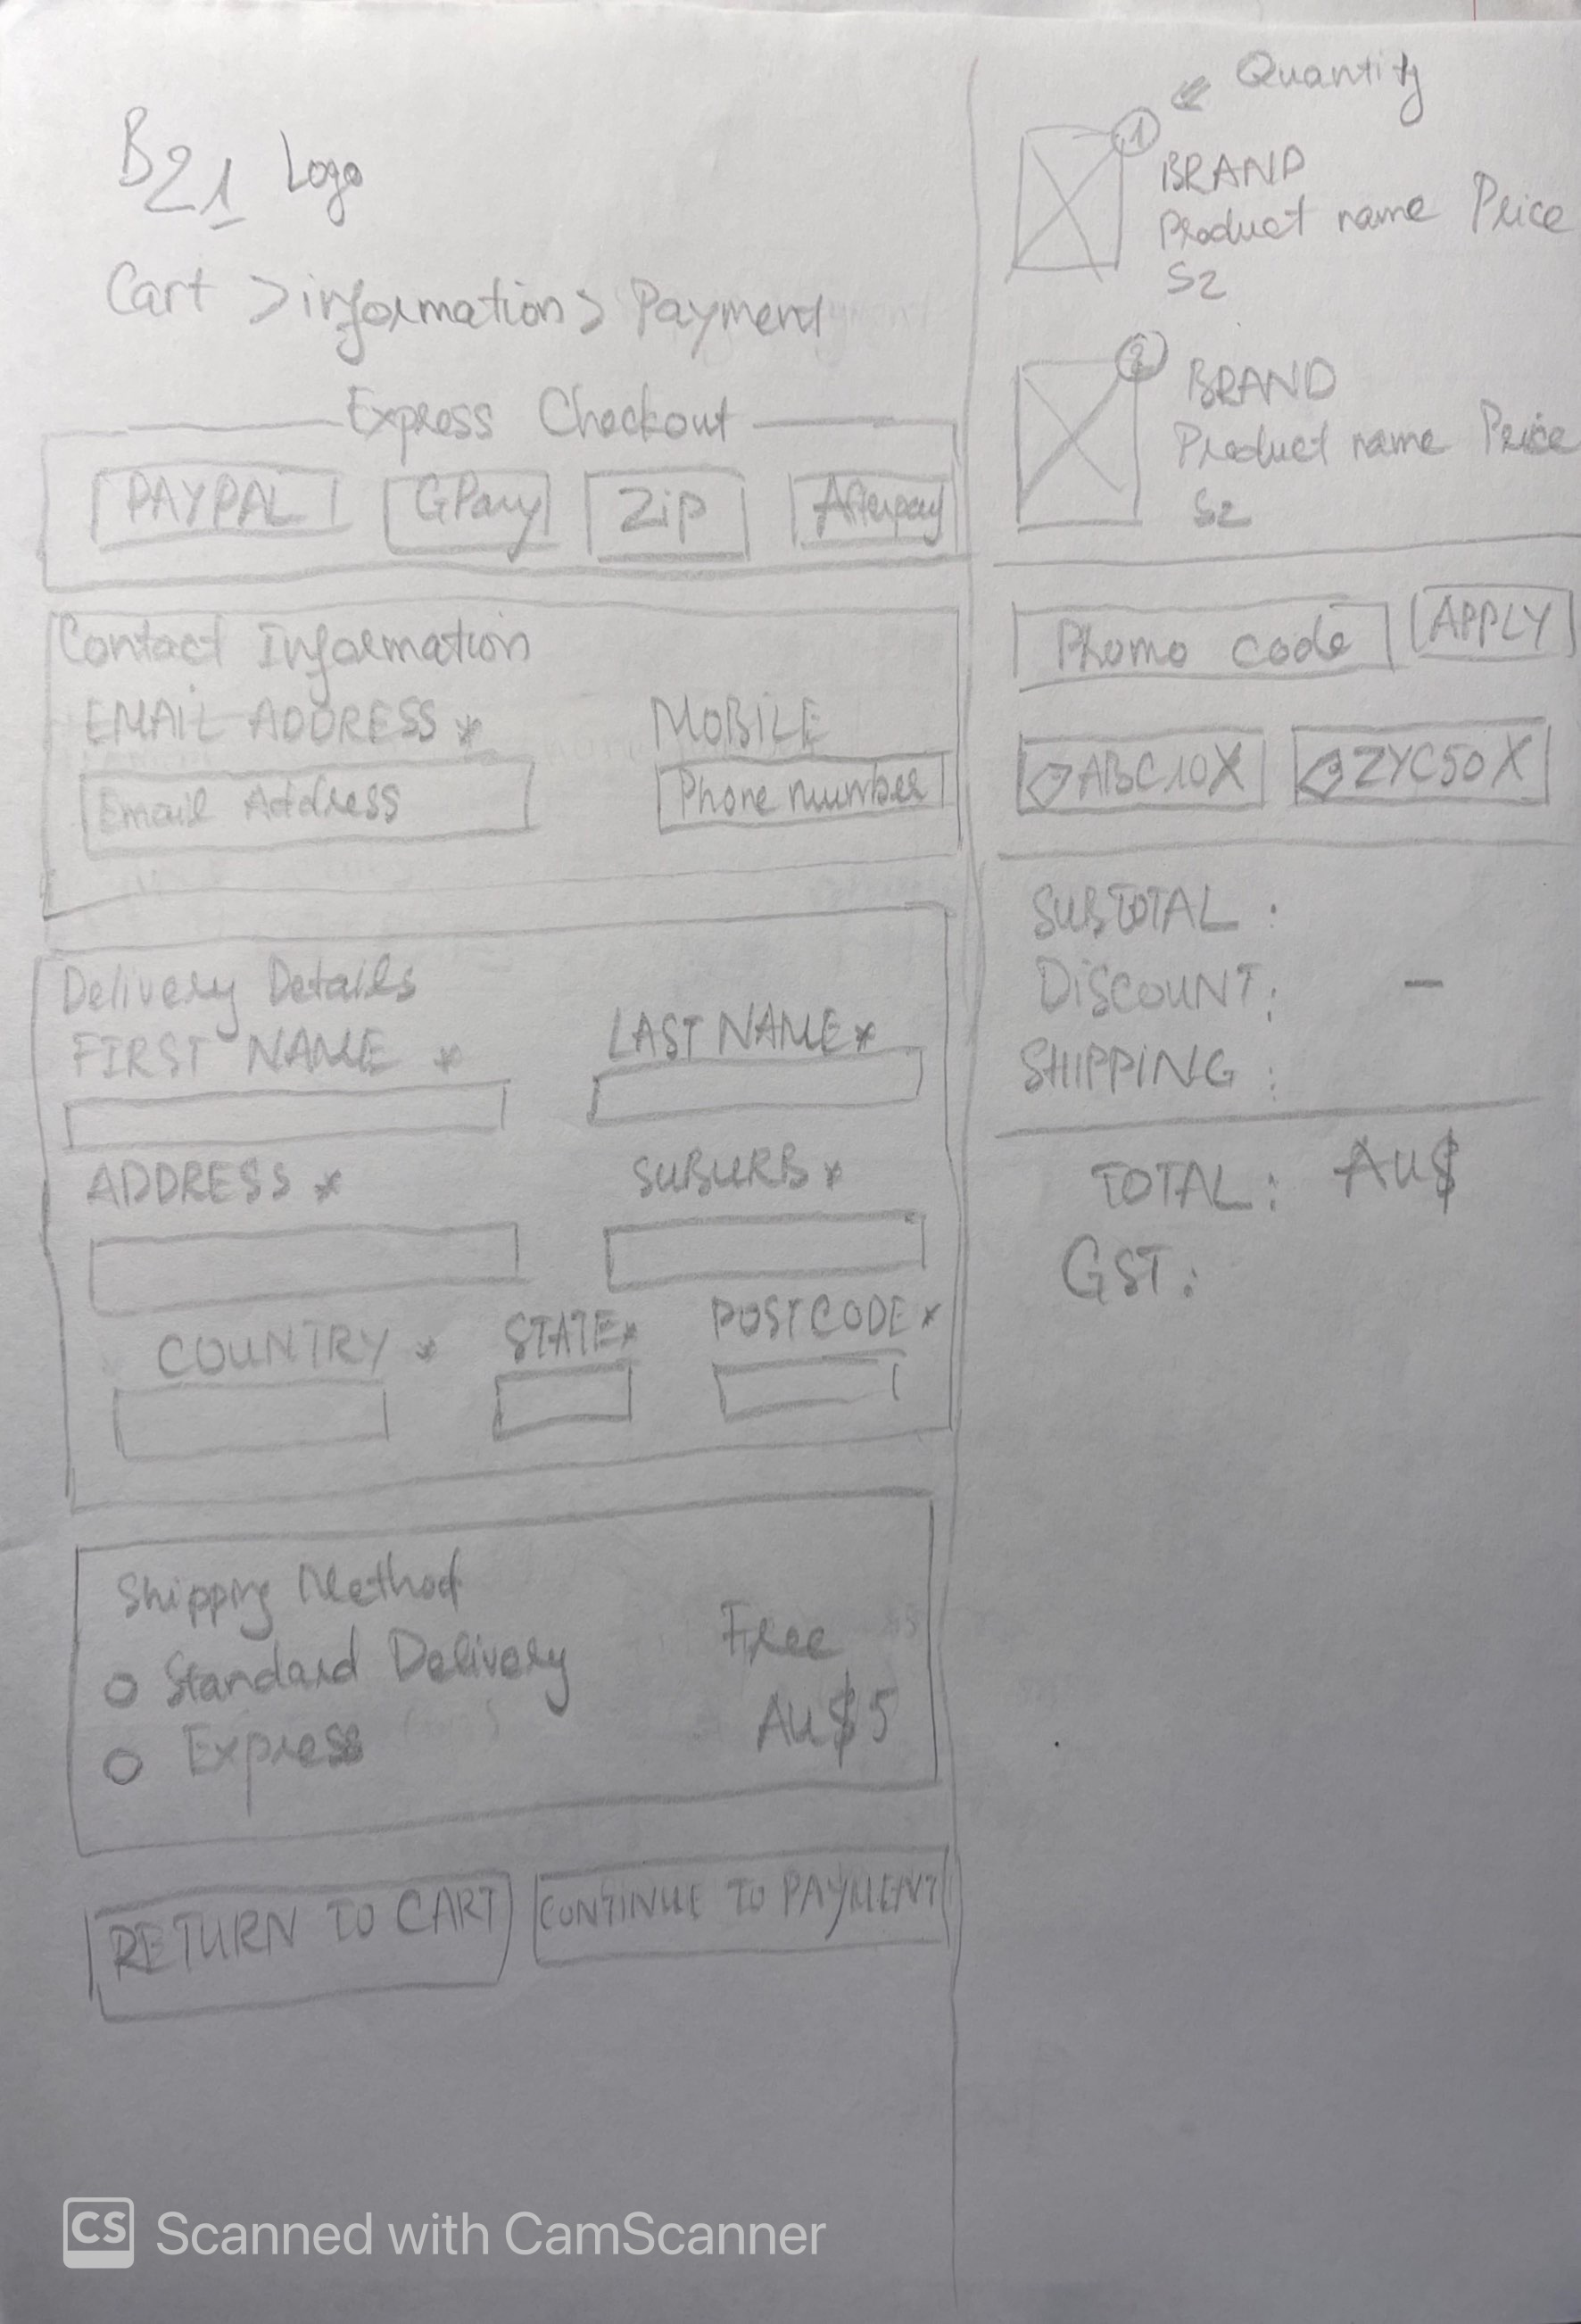 B21 Logo
Cart > information > Payment
Express Checkout
PAYPAL
GPay
Zip
Afterpay
Contact Information
EMAIL ADDRESS *
MOBILE
Email Address
Phone number
Delivery Details
FIRST NAME *
LAST NAME *
ADDRESS *
SUBURB *
COUNTRY *
STATE *
POSTCODE *
Shipping Method
Standard Delivery Free
Express Au$5
RETURN TO CART
CONTINUE TO PAYMENT
Quantity
1
BRAND
Product name Price
S2
2
BRAND
Product name Price
S2
Promo code
APPLY
ABC10 X
ZYC50 X
SUBTOTAL :
DISCOUNT: -
SHIPPING :
TOTAL: Au$
GST:
CS Scanned with CamScanner